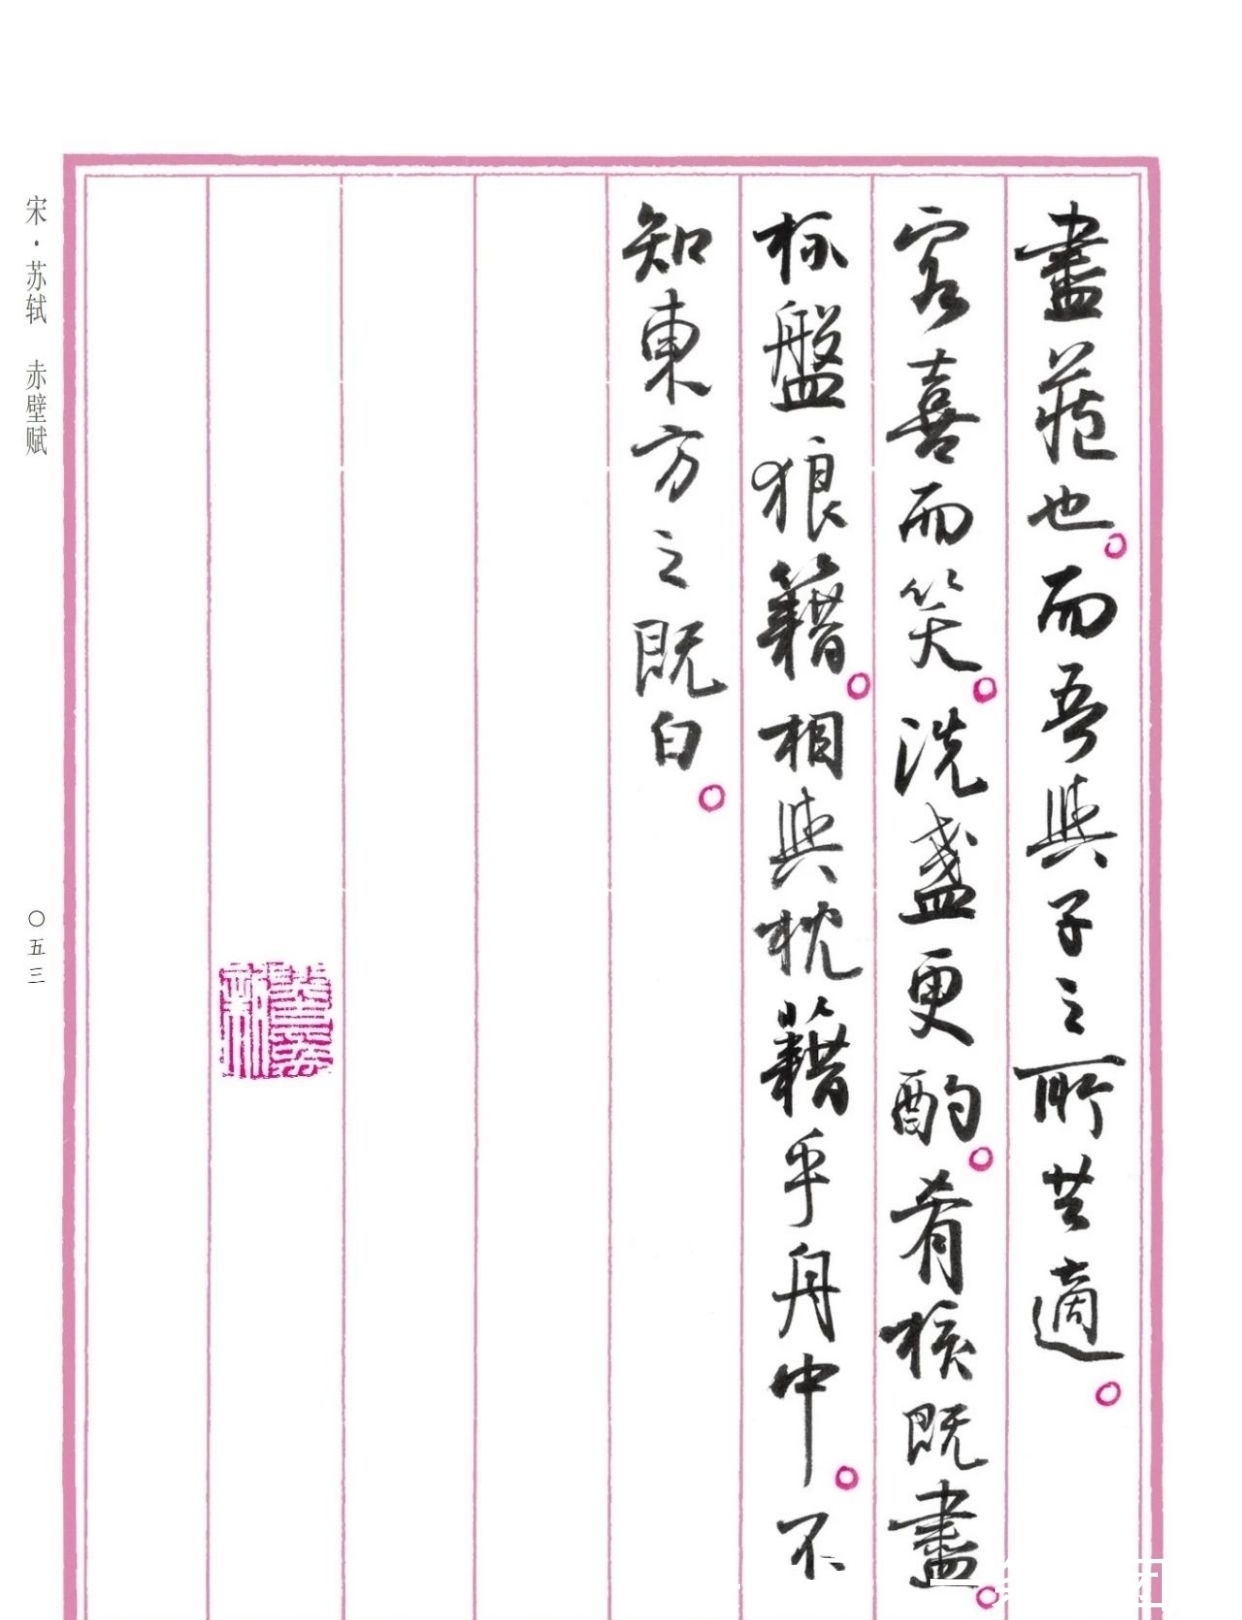 盡藏也。而吾與子之所共適。
客喜而笑。洗盞更酌。肴核既盡。
杯盤狼籍。相與枕藉乎舟中。不
知東方之既白。
宋·苏轼 赤壁赋
〇五三